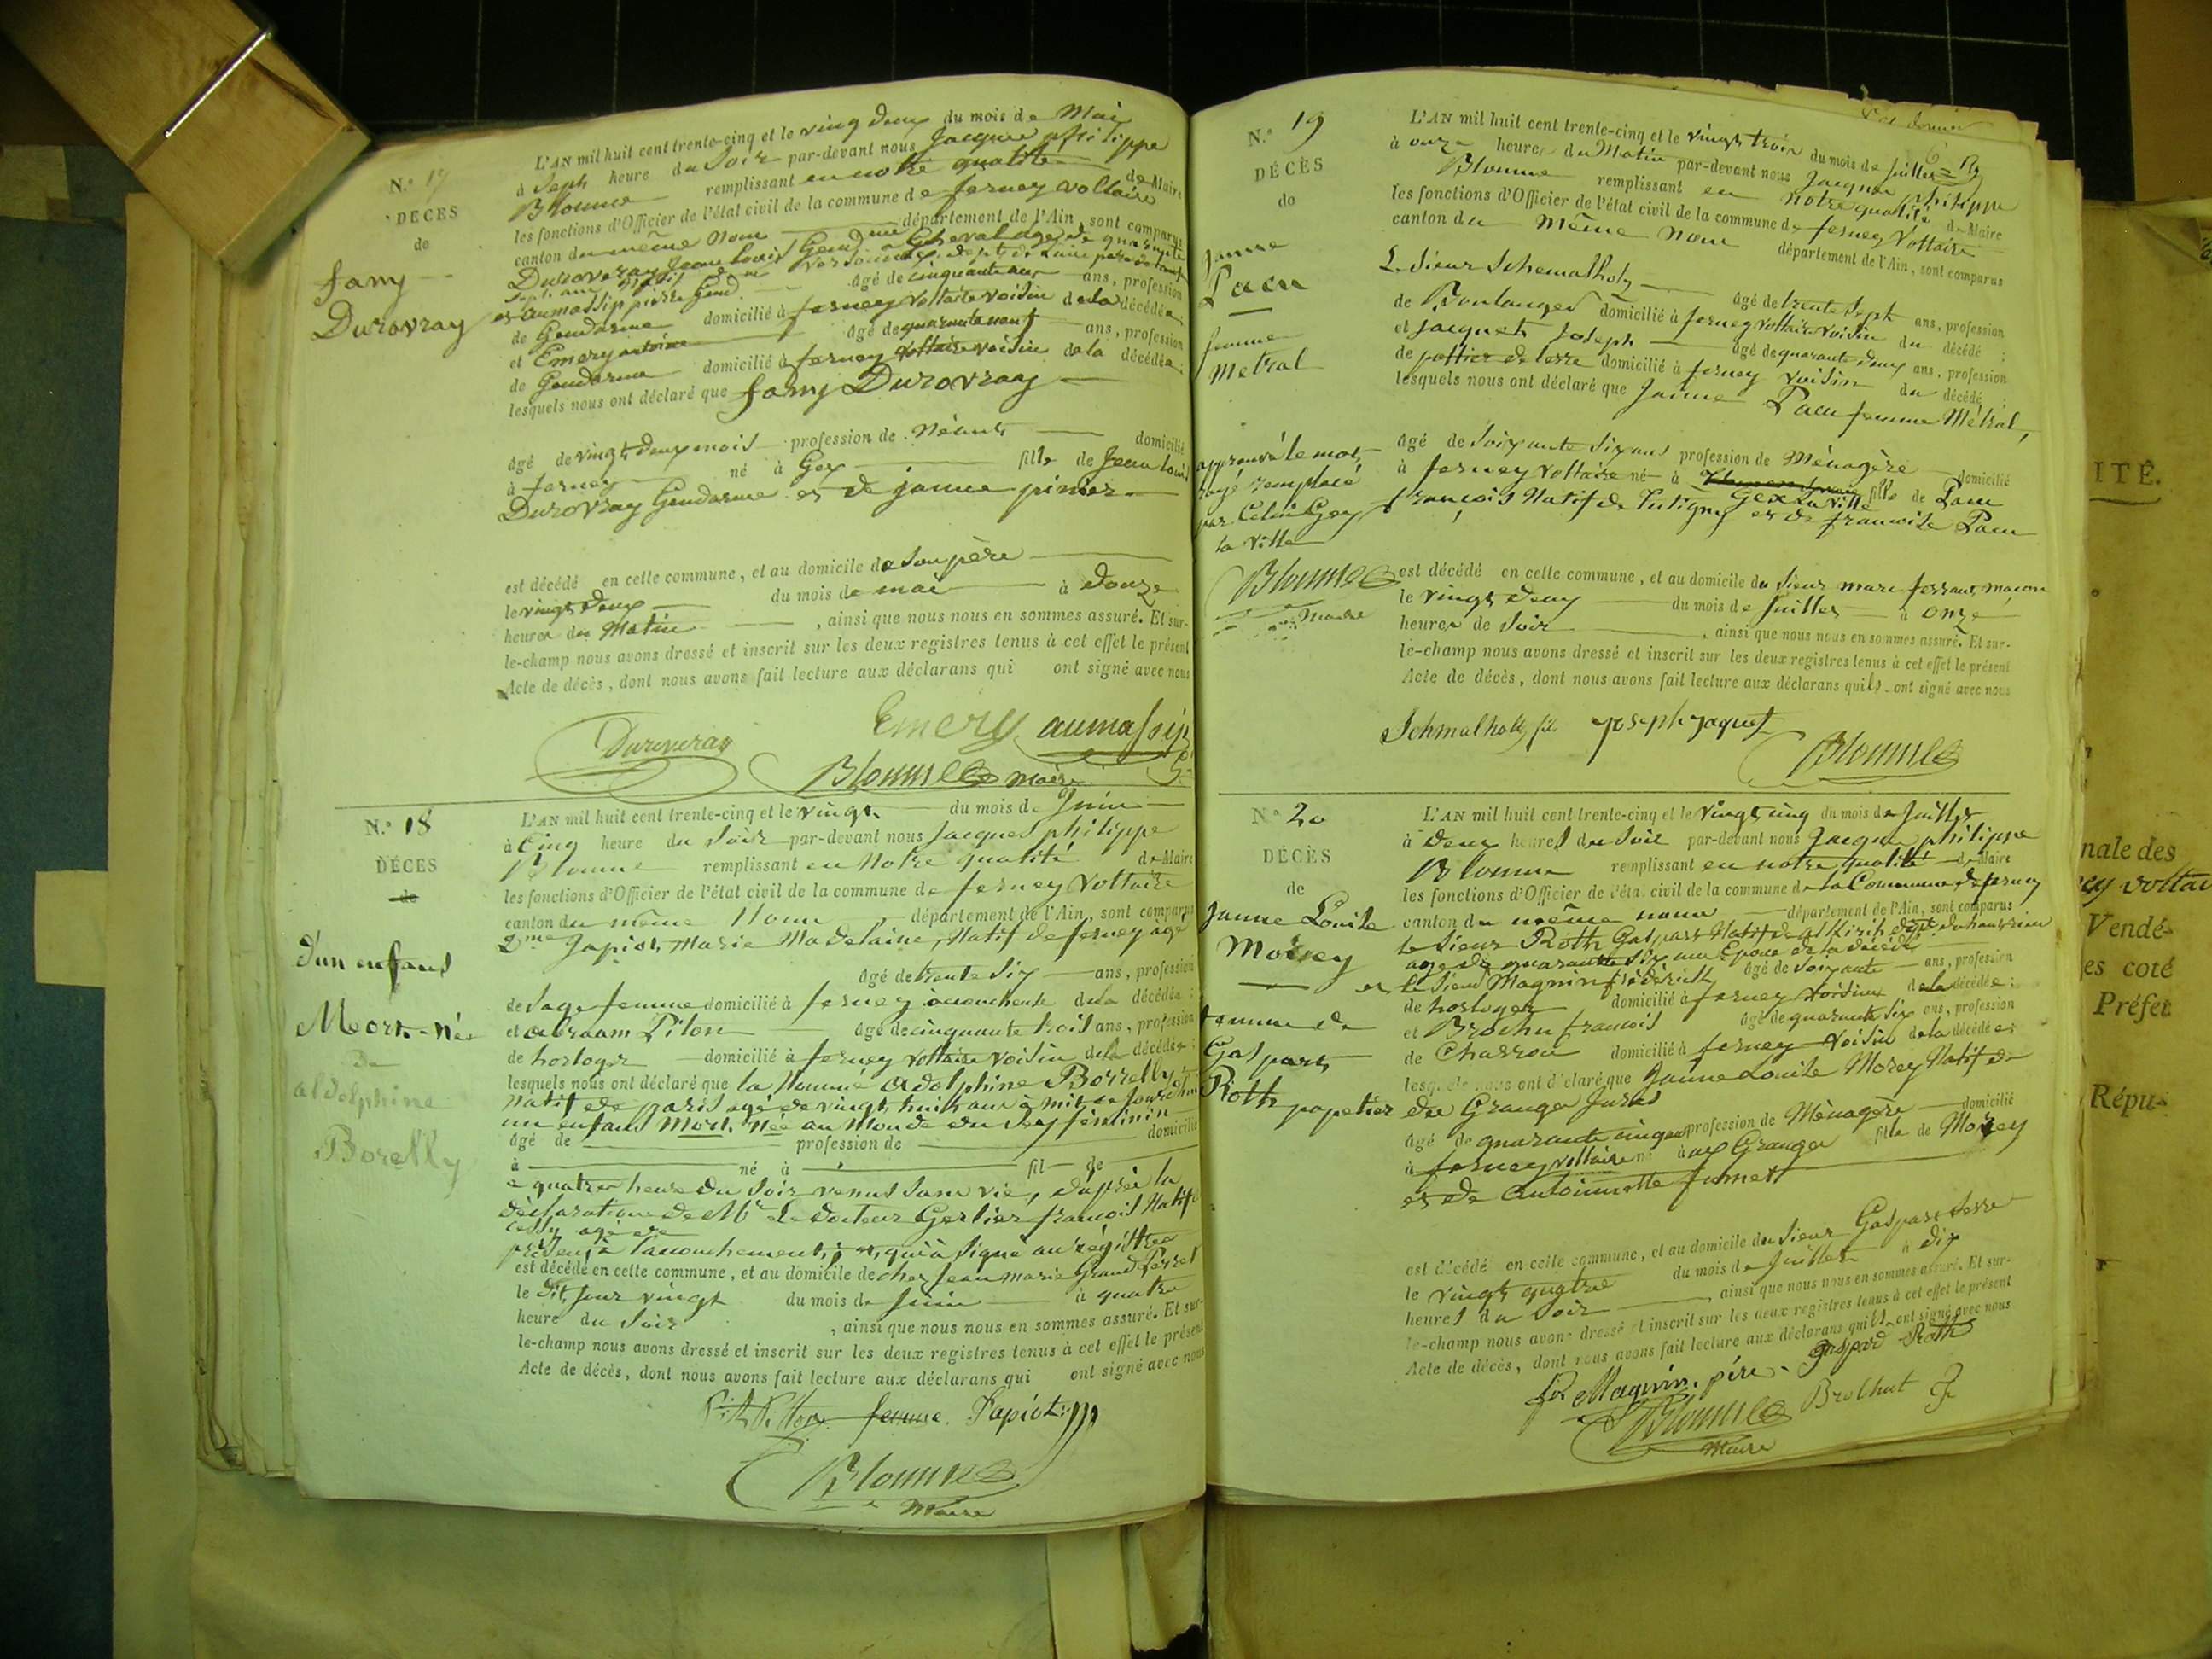 N.º 17
DÉCÈS
de
famy
Durovray
L'AN mil huit cent trente-cinq et le vingt deux du mois de Mai
à Sept heure du Soir par-devant nous Jacques philippe
Blonme remplissant en notre qualité de Maire
les fonctions d'Officier de l'état civil de la commune de ferney voltaire
canton du même Nom département de l'Ain, sont comparus
Duroveray Jean Louis Gend.me a Cheval age de quarante
Sept ans
et aumassip pierre Gend. agé de cinquante ans, profession
de Gendarme domicilié à ferney voltaire voisin de la décédée;
et Emery antoine agé de quarante neuf ans, profession
de Gendarme domicilié à ferney voltaire voisin de la décédée;
lesquels nous ont déclaré que famy Durovray
agé de vingt deux mois profession de Néant domicilié
à ferney né à Gex fille de Jean Louis
Durovray Gendarme et de janne pinier
est décédé en cette commune, et au domicile de Son père
le vingt deux du mois de mai à Douze
heures du Matin, ainsi que nous nous en sommes assuré. Et sur-
le-champ nous avons dressé et inscrit sur les deux registres tenus à cet effet le présent
Acte de décès, dont nous avons fait lecture aux déclarans qui ont signé avec nous
Emery aumassip
Duroveray
Blonme maire
N.º 18
DÉCÈS
de
d'un enfant
Mort-née
de
aldelphine
Borelly
L'AN mil huit cent trente-cinq et le vingt du mois de Juin
à Cinq heure du Soir par-devant nous Jacques philippe
Blonme remplissant en Notre qualité de Maire
les fonctions d'Officier de l'état civil de la commune de ferney Voltaire
canton du même Nom, département de l'Ain, sont comparus
D.me Japiot, Marie Madelaine, Natif de ferney agé
agé de trente Six ans, profession
de Sage femme domicilié à ferney acoucheuse de la décédée:
et abraam Piton agé de cinquante trois ans, profession
de horloger domicilié à ferney voltaire voisin de la décédée:
lesquels nous ont déclaré que la Nommé adelphine Borrelly
natif de paris agé de vingt huit ans à mis ce jourd'hui
un enfant Mort-Née au Monde du Sexe féminin
agé de profession de domicilié
à né à fil de
à quatre heure du Soir venus Sans vie, d'après la
déclaration de Mr Le docteur Gerlier francois Natif
cessy agé de
présent à l'acouchement, et qui à Signé au régistre
est décédé en cette commune, et au domicile de chez Jean marie Grand Perret
le Dit Jour vingt du mois de Juin à quatre
heure du Soir, ainsi que nous nous en sommes assuré. Et sur-
le-champ nous avons dressé et inscrit sur les deux registres tenus à cet effet le présent
Acte de décès, dont nous avons fait lecture aux déclarans qui ont signé avec nous
femme Papiot
Blonme
Maire
N.º 19
DÉCÈS
de
Janne
Pacu
femme
Metral
approuvé le mot
rayé remplacé
par Celui Gex
la Ville
Blonme
Maire
L'AN mil huit cent trente-cinq et le vingt trois du mois de Juillet
à onze heures du Matin par-devant nous Jacques philippe
Blonme remplissant en notre qualité de Maire
les fonctions d'Officier de l'état civil de la commune de ferney Voltaire
canton du même nom département de l'Ain, sont comparus
Le Sieur Schemalholz agé de trente Sept ans, profession
de Boulanger domicilié à ferney voltaire voisin du décédé;
et Jacquet Joseph agé de quarante deux ans, profession
de pottier de terre domicilié à ferney voisin du décédé;
lesquels nous ont déclaré que Janne Pacu femme Métral,
agé de Soixante Six ans profession de Ménagère domicilié
à ferney Voltaire né à Gex la Ville fille de Pacu
françois Natif de Putigny et de francoise Pacu
est décédé en cette commune, et au domicile du Sieur marc ferrand macon
le vingt deux du mois de Juillet à onze
heures de Soir, ainsi que nous nous en sommes assuré. Et sur-
le-champ nous avons dressé et inscrit sur les deux registres tenus à cet effet le présent
Acte de décès, dont nous avons fait lecture aux déclarans quils ont signé avec nous
Schmalholz fils Joseph jaquet
Blonme
N.º 20
DÉCÈS
de
Janne Louise
Morey
femme de
Gaspart
Roth papetier
L'AN mil huit cent trente-cinq et le vingt cinq du mois de Juillet
à deux heures du Soir par-devant nous Jacques philippe
Blonme remplissant en notre qualité de Maire
les fonctions d'Officier de l'état civil de la commune de la Commune de ferney
canton du même nom département de l'Ain, sont comparus
Le Sieur Roth Gaspart Natif de altkirch dept. du haut rhin
age de quarante Six ans Epoux de la décédé
et le Sieur Magnin frédérick agé de Soixante ans, profession
de horloger domicilié à ferney voisin de la décédée;
et Brochu francois agé de quarante Six ans, profession
de Charron domicilié à ferney voisin de la décédée;
lesquels nous ont déclaré que Janne Louise Morey Natif de
du Grange Jura
agé de quarante cinq ans profession de Ménagère domicilié
à ferney voltaire né à aux Granges fille de Morey
et de Antoinette fumey
est décédé en cette commune, et au domicile du Sieur Gaspart
le vingt quatre du mois de Juillet à dix
heures du Soir, ainsi que nous nous en sommes assuré. Et sur-
le-champ nous avons dressé et inscrit sur les deux registres tenus à cet effet le présent
Acte de décès, dont nous avons fait lecture aux déclarans quils ont signé avec nous
Magnin père Gaspard Roth
Blonme Brolhut
Maire
ITÉ.
nale des
ey voltai
Vendé-
es coté
Préfet
Répu-